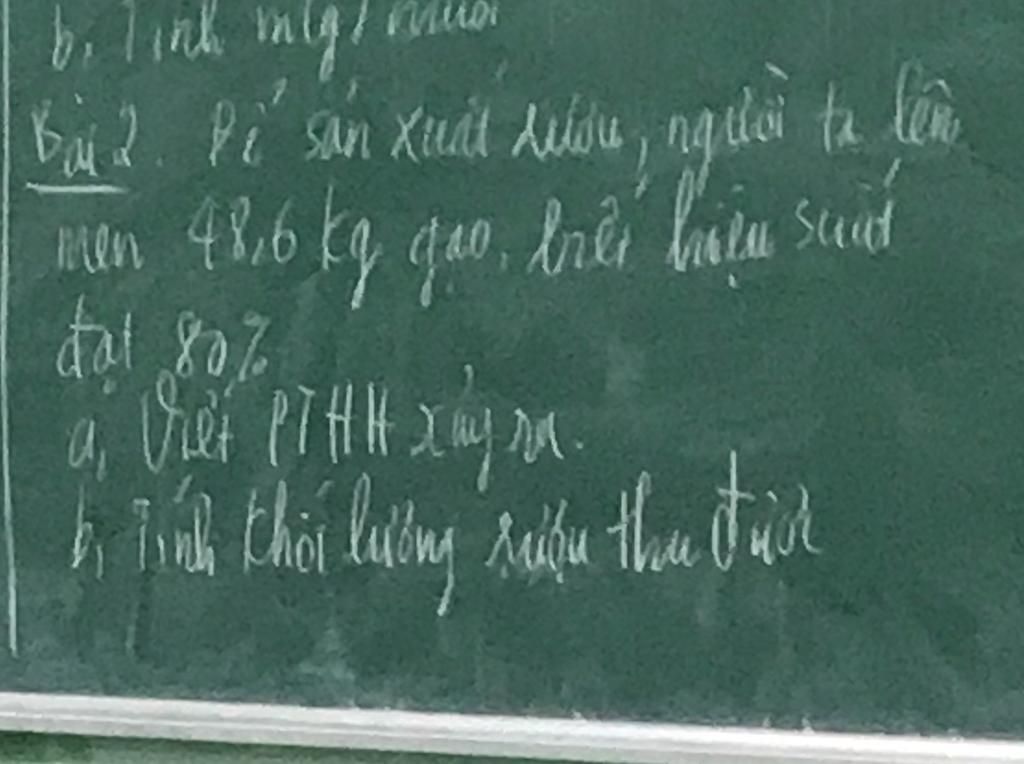 b, Tính m(g) muối
Bài 2. Để sản xuất rượu, người ta lên
men 48,6 kg gạo, biết hiệu suất
đạt 80%
a, Viết PTHH xảy ra.
b, Tính khối lượng rượu thu được